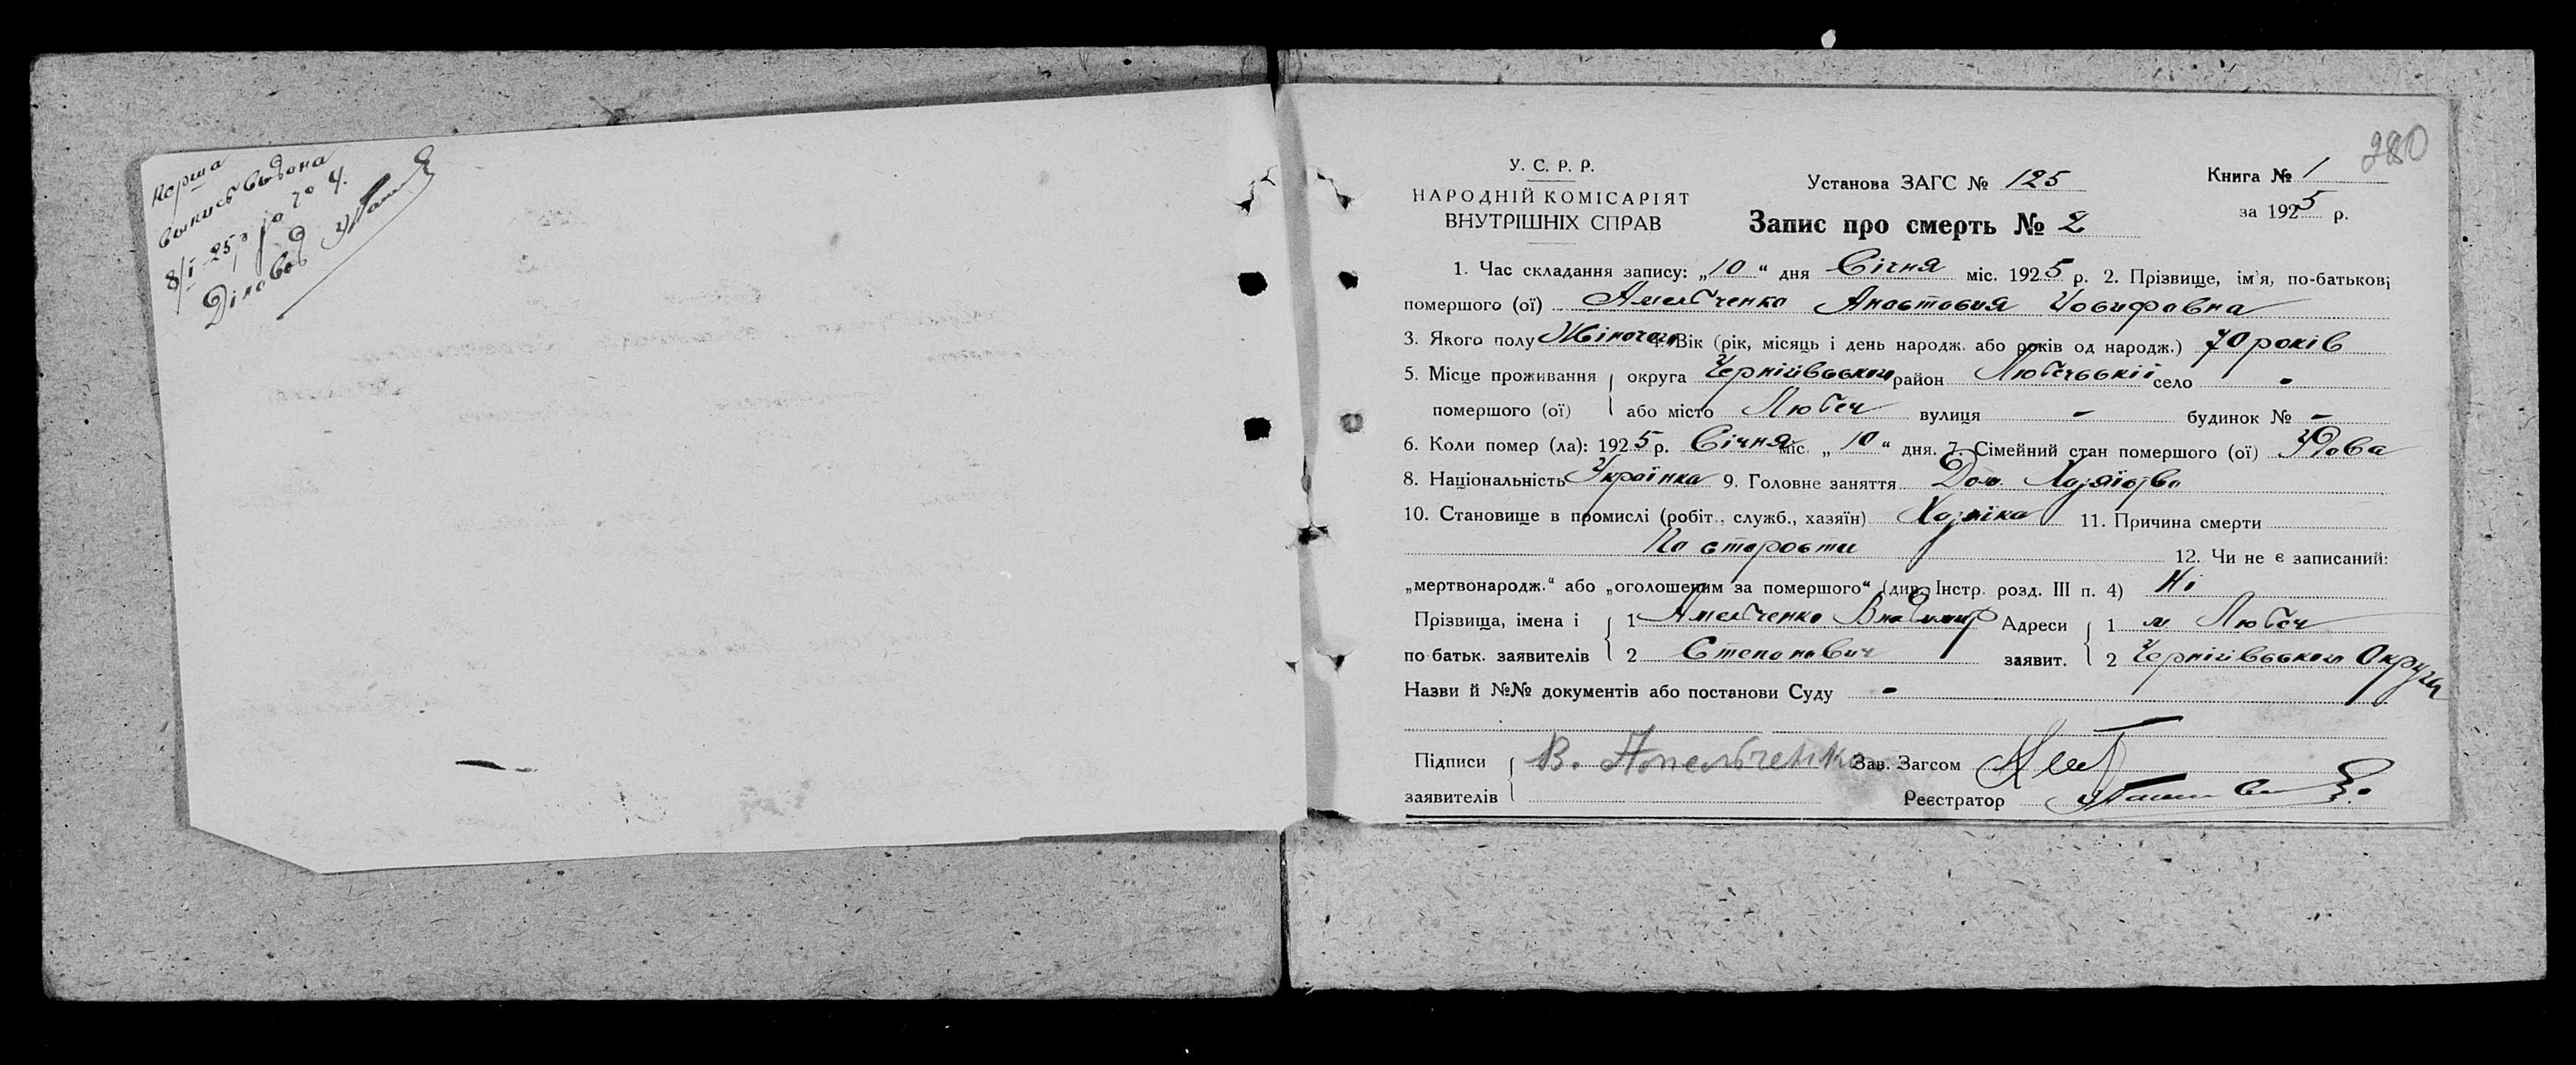 Перша
выпись выдана
8/I 25 р за № 4.
Діловод
280
У. С. Р. Р.
НАРОДНІЙ КОМІСАРІЯТ
ВНУТРІШНІХ СПРАВ
Установа ЗАГС № 125
Книга № 1
за 1925 р.
Запис про смерть № 2
1. Час складання запису: „10“ дня Січня міс. 1925 р. 2. Прізвище, ім'я, по-батькові
помершого (ої) Амельченко Анастасия Иосифовна
3. Якого полу Жіночого 4. Вік (рік, місяць і день народж. або років од народж.) 70 років
5. Місце проживання округа Чернігівської район Любечській село -
помершого (ої) або місто Любеч вулиця - будинок № -
6. Коли помер (ла): 1925 р. Січня міс. „10“ дня. 7. Сімейний стан помершого (ої) Удова
8. Національність Українка 9. Головне заняття Дом. Хазяїство
10. Становище в промислі (робіт., служб., хазяїн) Хазяіка 11. Причина смерти
По старости 12. Чи не є записаний:
„мертвонародж.“ або „оголошеним за помершого“ (див. Інстр. розд. III п. 4) Ні
Прізвища, імена і 1 Амельченко Владимир Адреси 1 м. Любеч
по батьк. заявителів 2 Степанович заявит. 2 Чернігівської Округи
Назви й №№ документів або постанови Суду -
Підписи В. Амельченко Зав. Загсом
заявителів Реєстратор